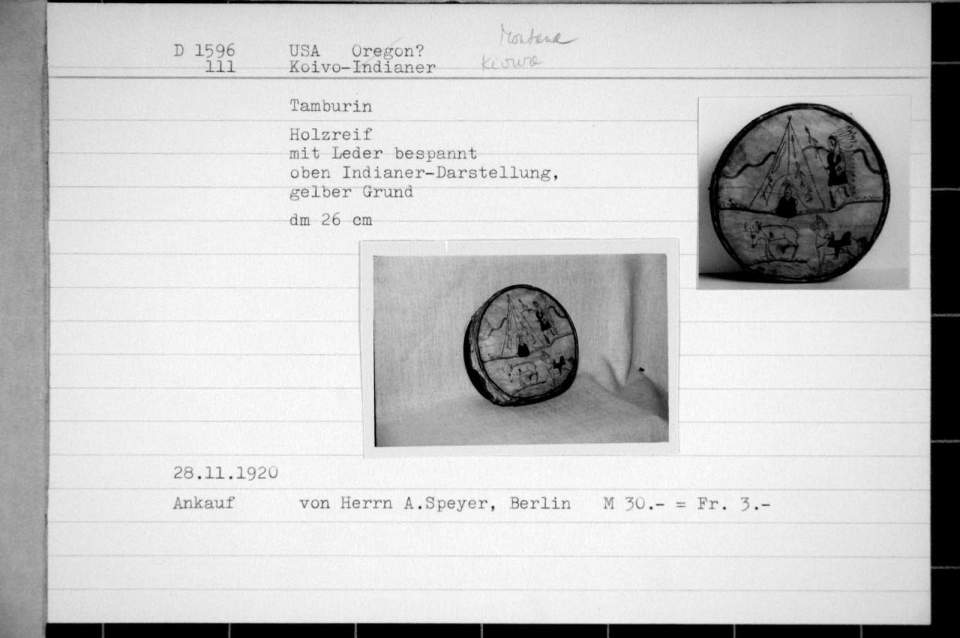 Montana
D 1596 USA Oregon?
111 Koivo-Indianer Kiowa
Tamburin
Holzreif
mit Leder bespannt
oben Indianer-Darstellung,
gelber Grund
dm 26 cm
28.11.1920
Ankauf von Herrn A.Speyer, Berlin M 30.- = Fr. 3.-